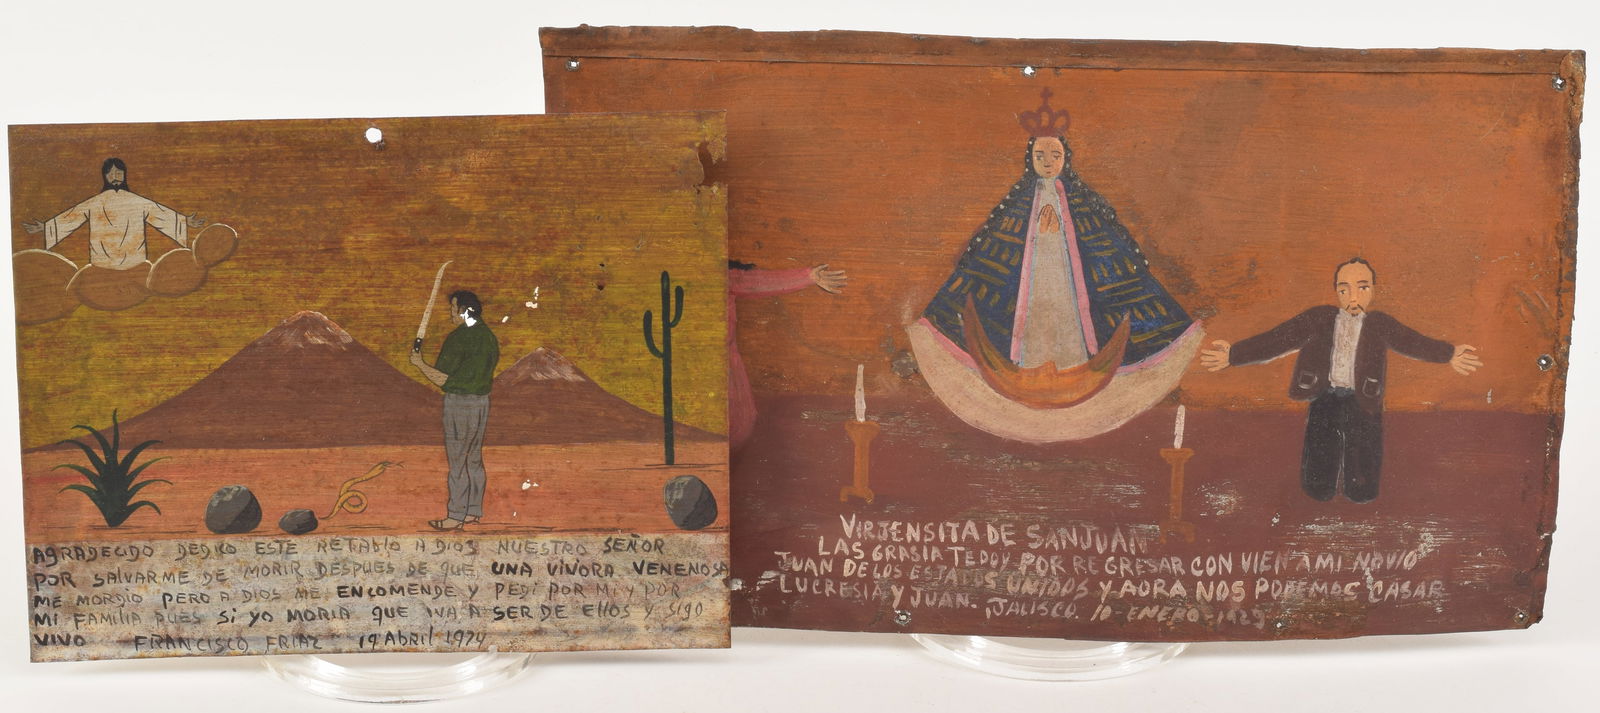 AGRADECIDO DEDICO ESTE RETABlO A DIOS NUESTRO SEÑOR
POR SALVARME DE MORIR DESPUES DE QUE UNA VIVORA VENENOSA
ME MORDIO PERO A DIOS ME ENCOMENDE Y PEDI POR MI Y POR
MI FAMILIA PUES Si YO MORIA QUE IVA A SER DE EllOS Y SIGO
VIVO FRANCISCO FRIAZ 19 Abril 1974
VIRJENSITA DE SANJUAN
LAS GRASIA TEDOY POR REGRESAR CON VIEN A MI NOVIO
JUAN DE LOS ESTADOS UNIDOS Y AORA NOS PODEMOS CASAR
LUCRESIA Y JUAN. JALISCO. 10 ENERO-1929